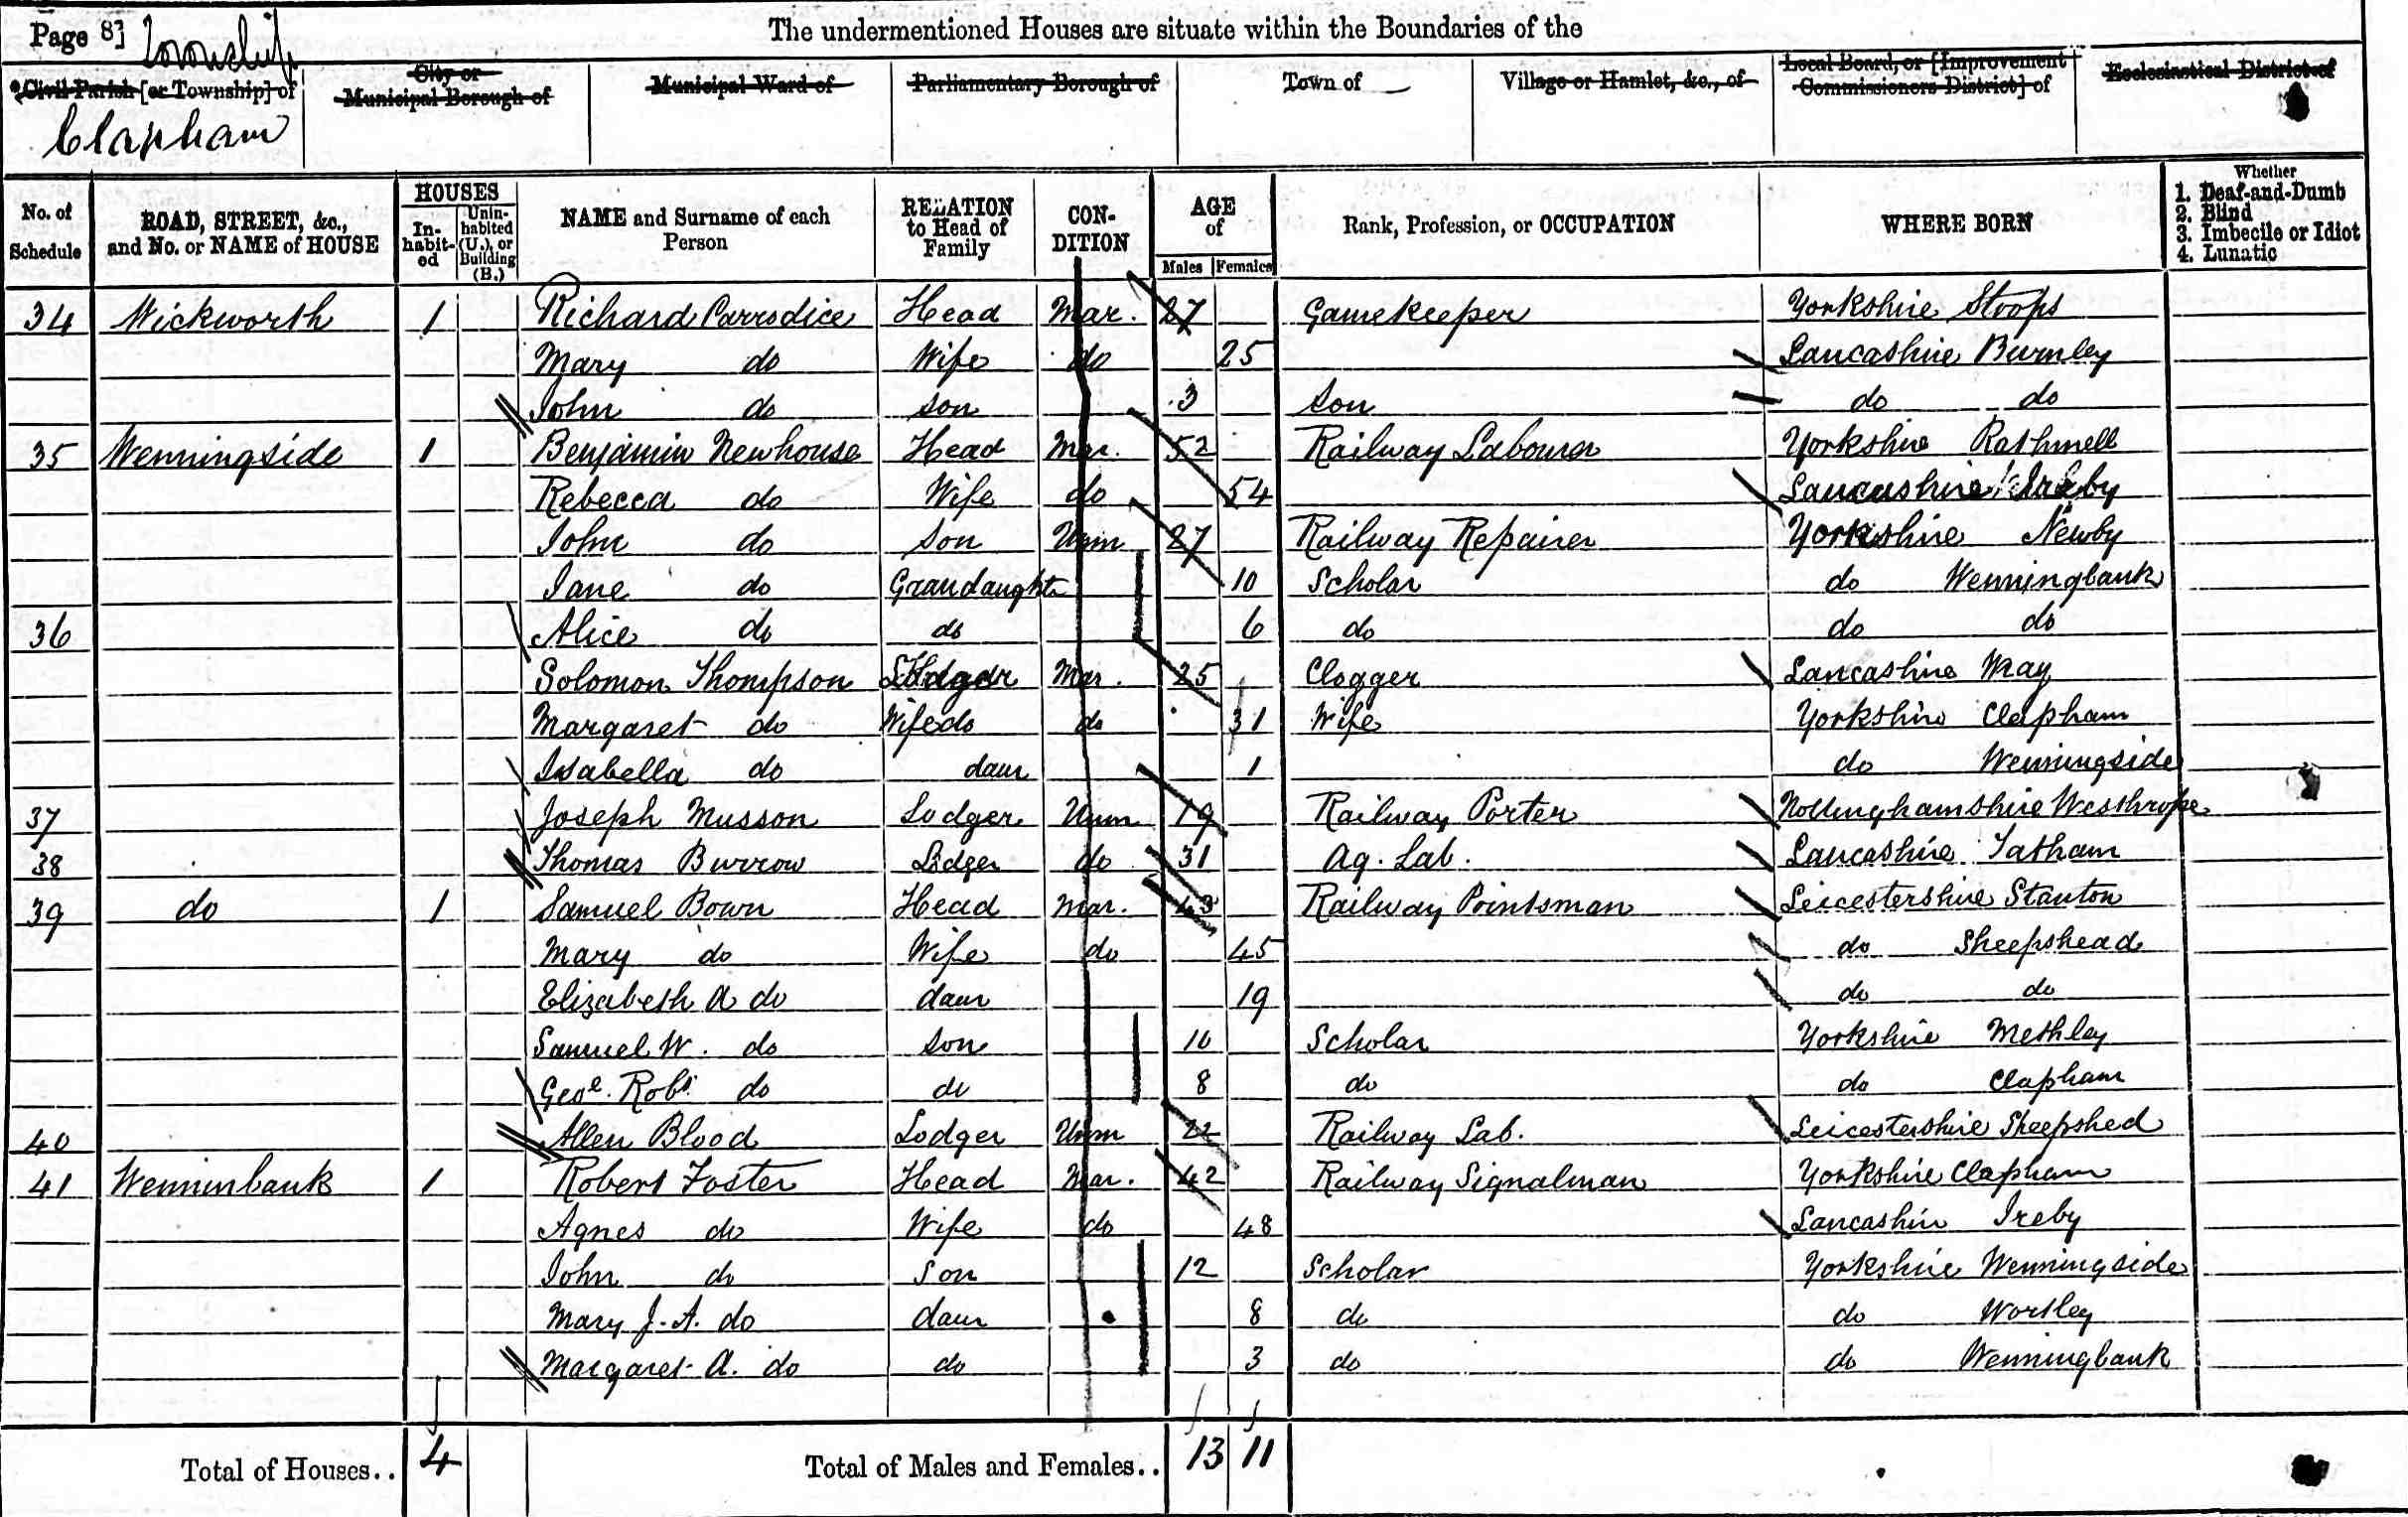 Page 8] Township
The undermentioned Houses are situate within the Boundaries of the
Civil Parish [or Township] of
Clapham
City or Municipal Borough of
Municipal Ward of
Parliamentary Borough of
Town of
Village or Hamlet, &c., of
Local Board, or [Improvement Commissioners District] of
Ecclesiastical District of
No. of Schedule
ROAD, STREET, &c., and No. or NAME of HOUSE
HOUSES
In-habit-ed
Unin-habited (U.), or Building (B.)
NAME and Surname of each Person
RELATION to Head of Family
CON-DITION
AGE of
Males Females
Rank, Profession, or OCCUPATION
WHERE BORN
Whether
1. Deaf-and-Dumb
2. Blind
3. Imbecile or Idiot
4. Lunatic
34 Wickworth 1 Richard Carrodice Head Mar. 27 Gamekeeper Yorkshire Stoops
Mary do Wife do 25 Lancashire Burnley
John do son 3 Son do do
35 Wenningside 1 Benjamin Newhouse Head Mar. 52 Railway Labourer Yorkshire Rathmell
Rebecca do Wife do 54 Lancashire
John do Son Unm 27 Railway Repairer Yorkshire Newby
Jane do Grandaughtr 10 Scholar do Wenningbank
36 Alice do do 6 do do do
Solomon Thompson Lodger Mar. 25 Clogger Lancashire Wray
Margaret do Wife do do 31 Wife Yorkshire Clapham
Isabella do daur 1 do Wenningside
37 Joseph Musson Lodger Unm 19 Railway Porter Nottinghamshire Westhrope
38 Thomas Burrow Lodger do 31 Ag. Lab. Lancashire Tatham
39 do 1 Samuel Bown Head Mar. 43 Railway Pointsman Leicestershire Stanton
Mary do Wife do 45 do Sheepshead
Elizabeth A do daur 19 do do
Samuel W. do son 10 Scholar Yorkshire Methley
Geoe. Robt. do do 8 do do Clapham
40 Allen Blood Lodger Unm 22 Railway Lab. Leicestershire Sheepshed
41 Wenninbank 1 Robert Foster Head Mar. 42 Railway Signalman Yorkshire Clapham
Agnes do Wife do 48 Lancashire Ireby
John do Son 12 Scholar Yorkshire Wenningside
Mary J. A. do daur 8 do do Wortley
Margaret A. do do 3 do do Wenningbank
Total of Houses.. 4 Total of Males and Females.. 13 11